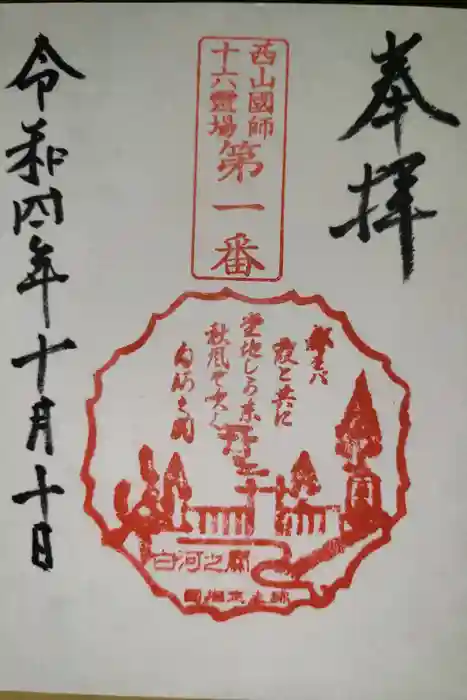 奉拝
西山國師
十六霊場
第一番
都をば
霞と共に
立しかど
秋風ぞ吹く
白河之関
白河之關
令和四年十月十日